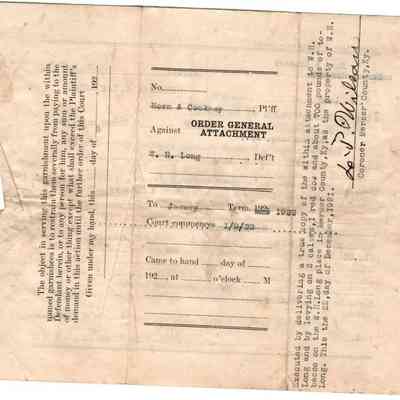 The object in serving this garnishment upon the within
named garnishees is to restrain them severally from paying to the
Defendant herein, or to any person for him, any sum or amount
of money or other thing except what shall exceed the Plaintiff's
demand in this action until the further order of this Court
Given under my hand, this day of 192
No.
Horn & Cooksey, Pl'ff.
Against ORDER GENERAL
ATTACHMENT
W. H. Long Def't
To January Term, 192 1922
Court commences 1/9/22
Came to hand day of
192 at o'clock M
Executed by delivering a true copy of the within attachment to W.H.
Long and by levying on 2 calves, 1 red cow and about 700 pounds of to-
bacco on the W.H.Long place in Mercer County,Ky,as the property of W.H.
Long. This the 22,day of December,1921.
Coroner Mercer County,Ky.